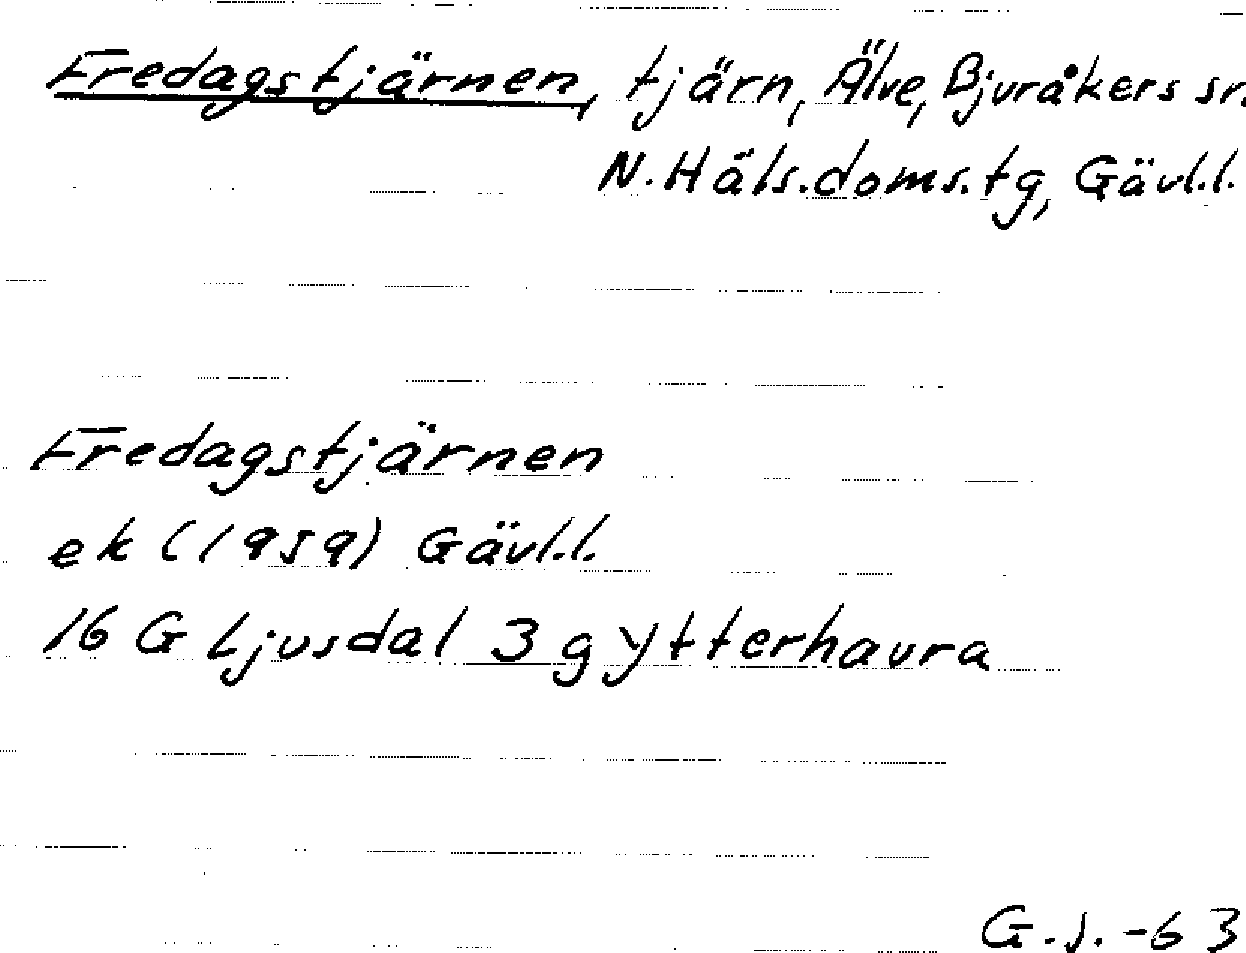 Fredagstjärnen, tjärn, Älve, Bjuråkers sn.
N. Häls. doms. tg, Gävl.l.
Fredagstjärnen
ek (1959) Gävl.l.
16 G Ljusdal 3 g Ytterhavra
G.J. -63